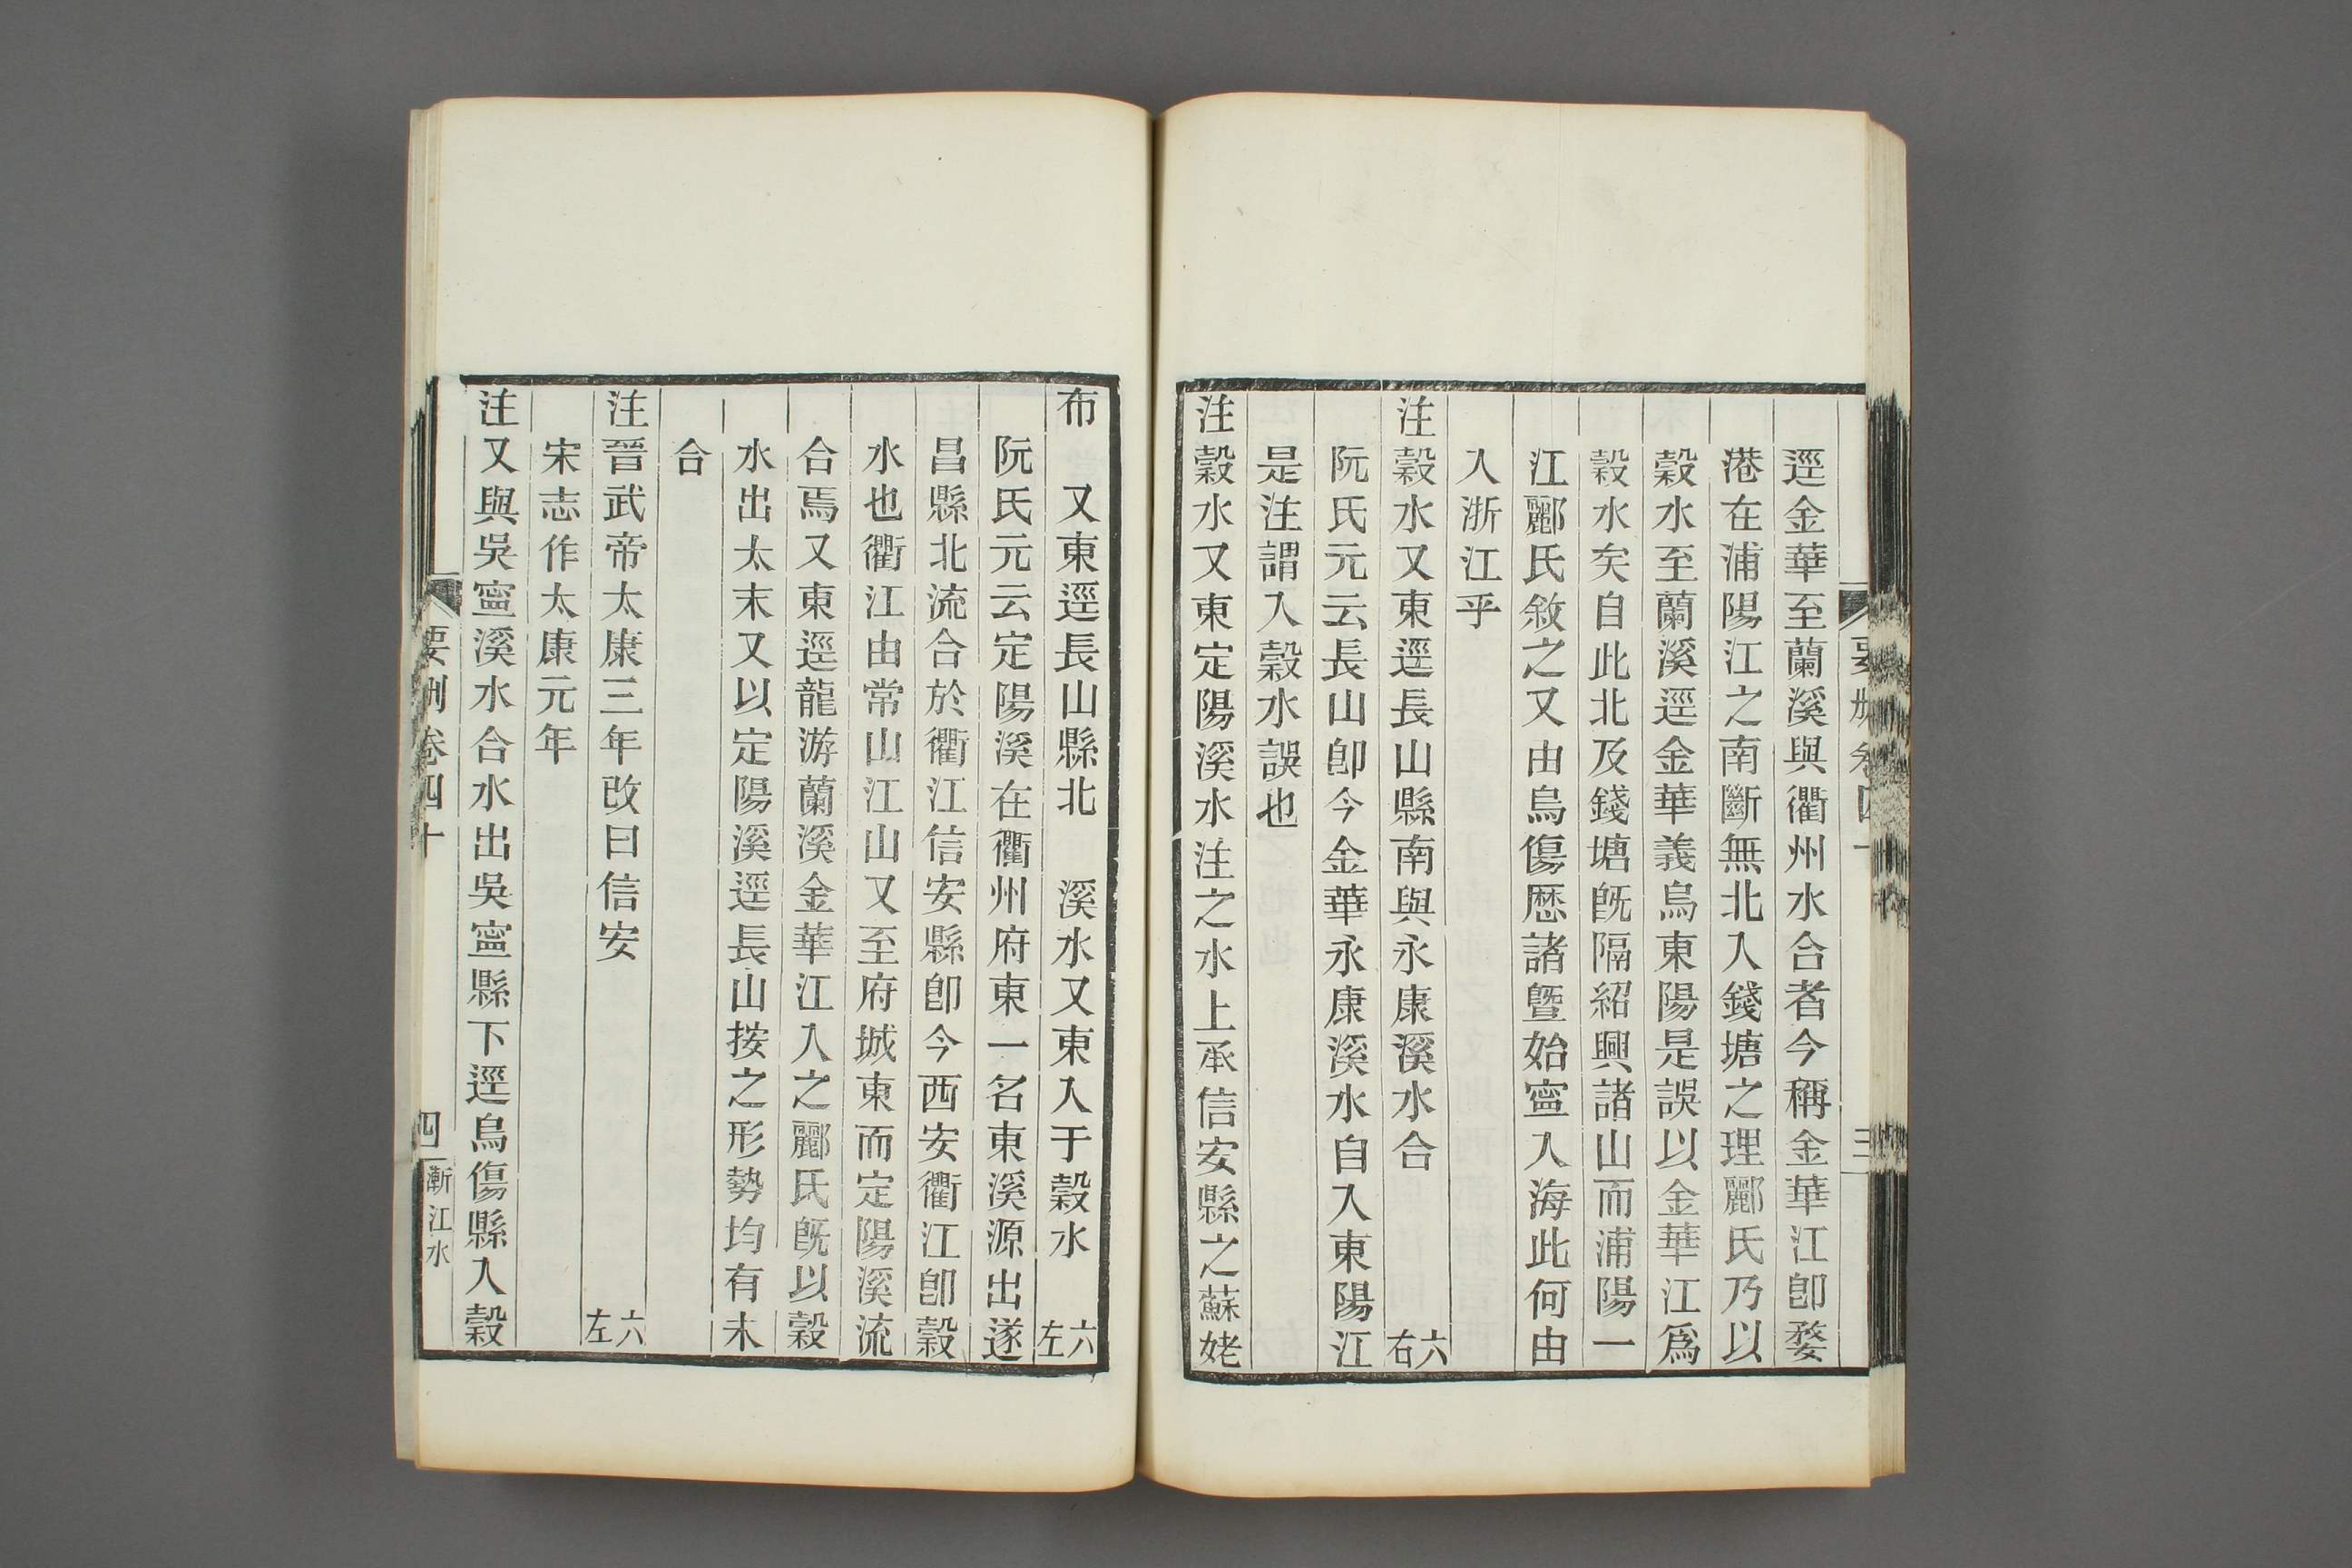 逕金華至蘭溪與衢州水合者今稱金華江卽婺
港在浦陽江之南斷無北入錢塘之理酈氏乃以
穀水至蘭溪逕金華義烏東陽是誤以金華江爲
穀水矣自此北及錢塘旣隔紹興諸山而浦陽一
江酈氏敘之又由烏傷歷諸曁始寍入海此何由
入浙江乎
注穀水又東逕長山縣南與永康溪水合 六右
阮氏元云長山卽今金華永康溪水自入東陽江
是注謂入穀水誤也
注穀水又東定陽溪水注之水上承信安縣之蘇姥
布 又東逕長山縣北 溪水又東入于穀水 六左
阮氏元云定陽溪在衢州府東一名東溪源出遂
昌縣北流合於衢江信安縣卽今西安衢江卽穀
水也衢江由常山江山又至府城東而定陽溪流
合焉又東逕龍游蘭溪金華江入之酈氏旣以穀
水出太末又以定陽溪逕長山按之形勢均有未
合
注晉武帝太康三年改曰信安 六左
宋志作太康元年
注又與吳寍溪水合水出吳寍縣下逕烏傷縣入穀
要刪卷四十 四 漸江水